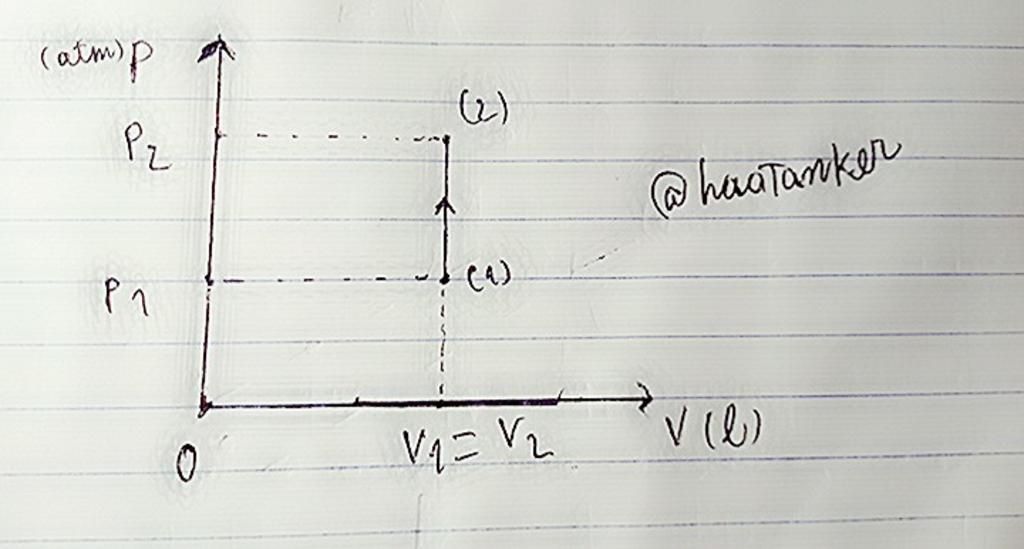 (atm) p
(2)
P2
@haaTanker
(1)
P1
V1 = V2
V (l)
0